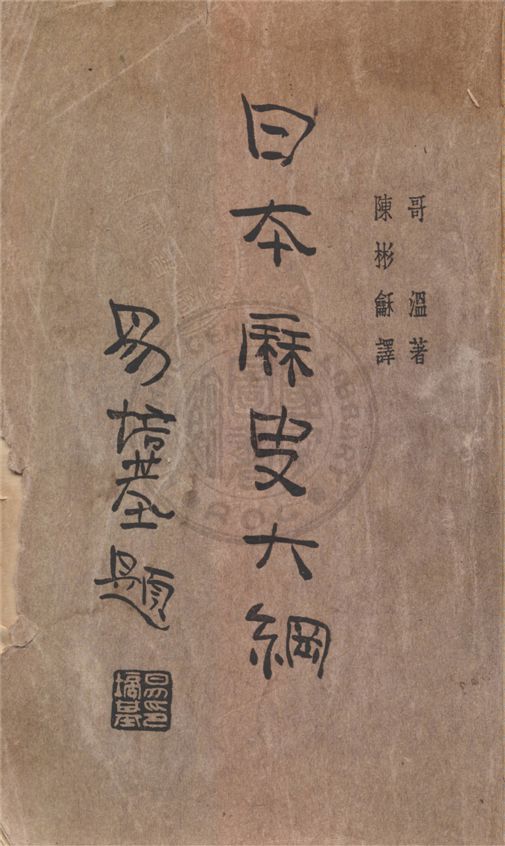 哥溫著
陳彬龢譯
日本厤史大綱
易培基題
易培基印